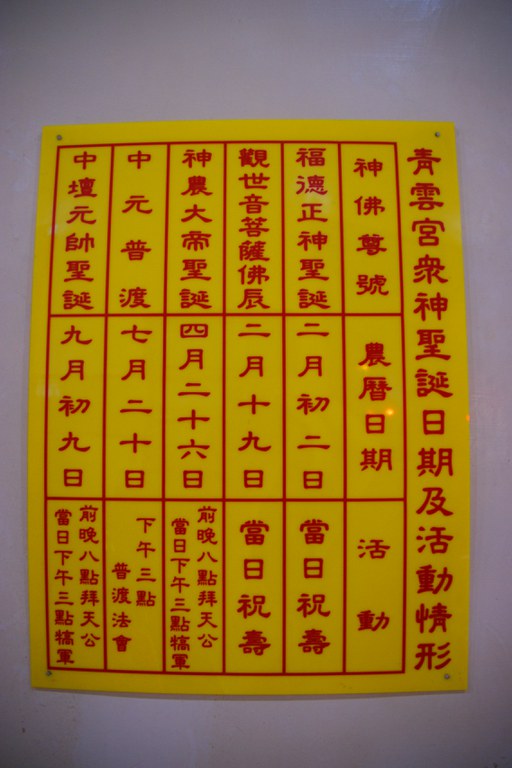 青雲宮眾神聖誕日期及活動情形
神佛尊號
農曆日期
活動
福德正神聖誕
二月初二日
當日祝壽
觀世音菩薩佛辰
二月十九日
當日祝壽
神農大帝聖誕
四月二十六日
前晚八點拜天公
當日下午三點犒軍
中元普渡
七月二十日
下午三點
普渡法會
中壇元帥聖誕
九月初九日
前晚八點拜天公
當日下午三點犒軍